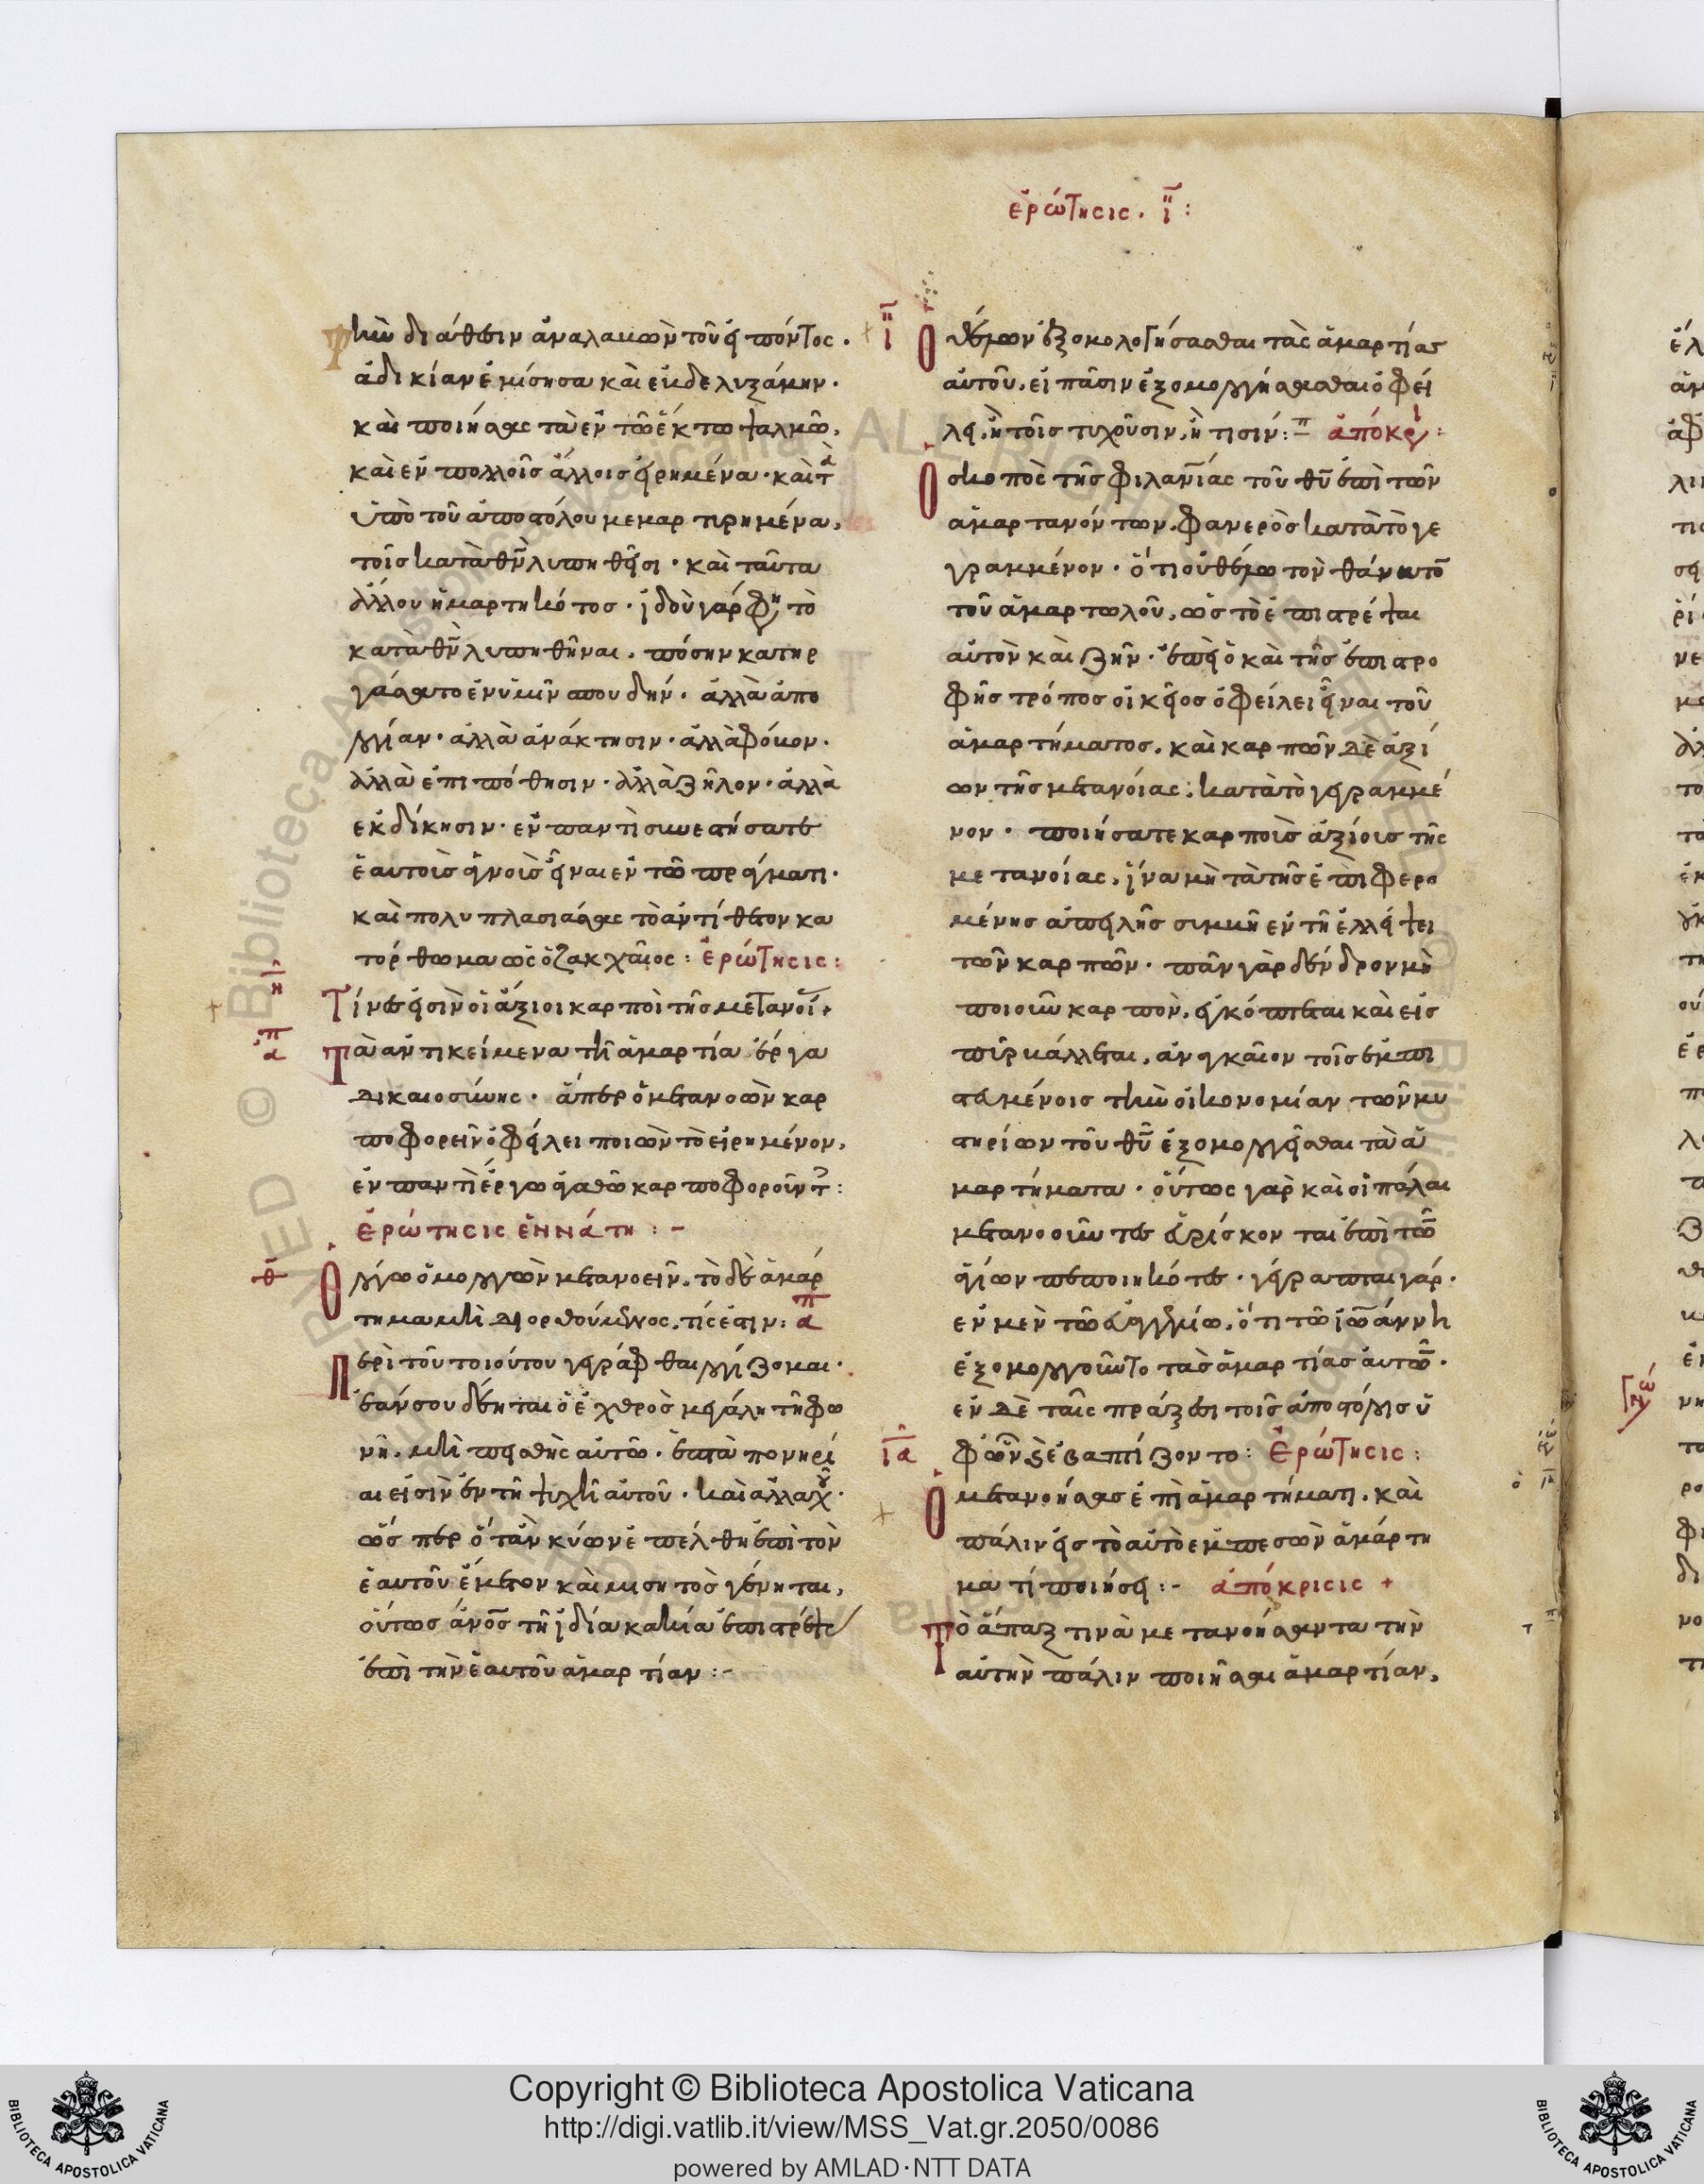 ἐρώτησις. ι̅:
τὴν διάθεσιν ἀναλαβὼν τοῦ εἰπόντος·
ἀδικίαν ἐμίσησα καὶ ἐβδελυξάμην·
καὶ ποιήσας τὰ ἐν τῷ ἕκτῳ ψαλμῷ,
καὶ ἐν πολλοῖς ἄλλοις εἰρημένα· καὶ τὰ
ὑπὸ τοῦ ἀποστόλου μεμαρτυρημένα,
τοῖς κατὰ θν̅ λυπηθεῖσι· καὶ ταῦτα
ἄλλου ἡμαρτηκότος· ἰδοὺ γάρ φη τὸ
κατὰ θν̅ λυπηθῆναι. πόσην κατηρ
γάσατο ἐν ὑμῖν σπουδήν· ἀλλὰ ἀπο
λογίαν· ἀλλὰ ἀνάκτησιν· ἀλλὰ φόβον·
ἀλλὰ ἐπιπόθησιν· ἀλλὰ ζῆλον· ἀλλὰ
ἐκδίκησιν· ἐν παντὶ συνεστήσατε
ἑαυτοὺς ἁγνοὺς εἶναι ἐν τῷ πράγματι·
καὶ πολυπλασιάσας τὸ ἀντίθετον κα
τόρθωμα ὡς ὁ ζακχαῖος: ἐρώτησις:
η̅ Τίνες εἰσὶν οἱ ἄξιοι καρποὶ τῆς μετανοί
ἀπ Τὰ ἀντικείμενα τῇ ἁμαρτία ἔργα
δικαιοσύνης· ἅπερ ὁ μετανοῶν καρ
ποφορεῖν ὀφείλει ποιῶν τὸ εἰρημένον,
ἐν παντὶ ἔργω ἀγαθῶ καρποφοροῦντ:
ἐρώτησις ἐννάτη:-
θ̅ Ὁ λόγω ὁμολογῶν μετανοεῖν. τὸ δὲ ἁμάρ
τημα μὴ διορθούμενος, τίς ἐστιν: ἀπ
Περὶ τοῦ τοιούτου γεγράφθαι λογίζομαι·
ἐάν σου δέηται ὁ ἐχθρὸς μεγάλη τῆ φω
νῆ. μὴ πεισθῆς αὐτῶ· ἑπτὰ πονηρί
αι εἰσὶν ἐν τῆ ψυχῆ αὐτοῦ· καὶ ἀλλαχοῦ·
ὥσπερ ὅταν κύων ἐπέλθη ἐπὶ τὸν
ἑαυτοῦ ἔμετον καὶ μισητὸς γένηται,
οὕτως ἄνο̅ς τῆ ἰδία κακία ἐπιστρέψας
ἐπὶ τὴν ἑαυτοῦ ἁμαρτίαν:-
ι̅ Ὁ θέλων ἐξομολογήσασθαι τὰς ἁμαρτίας
αὐτοῦ, εἰ πᾶσιν ἐξομολογήσασθαι ὀφεί
λει, ἢ τοῖς τυχοῦσιν, ἢ τισίν:- ἀπόκρι:
Ὁ σκοπὸς τῆς φιλανί̅ας τοῦ θυ̅ ἐπὶ τῶν
ἁμαρτανόντων, φανερὸς κατὰ τὸ γε
γραμμένον· ὅτι οὐ θέλω τὸν θάνατο
τοῦ ἁμαρτωλοῦ, ὡς τὸ ἐπιστρέψαι
αὐτὸν καὶ ζῆν· ἐπεὶ ὁ καὶ τῆς ἐπιστρο
φῆς τρόπος οἰκεῖος ὀφείλει εἶναι τοῦ
ἁμαρτήματος, καὶ καρπῶν δὲ ἀξί
ων τῆς μετανοίας: κατὰ τὸ γεγραμμέ
νον· ποιήσατε καρποὺς ἀξίους τῆς
μετανοίας, ἵνα μὴ τὰ τῆς ἐπιφερο
μένης ἀπειλῆς συμβῆ ἐν τῆ ἐλλείψει
τῶν καρπῶν· πᾶν γὰρ δένδρον μὴ
ποιοῦν καρπὸν, ἐκκόπτεται καὶ εἰς
πῦρ βάλλεται, ἀναγκαῖον τοῖς ἐμπι
στευμένοις τὴν οἰκονομίαν τῶν μυ
στηρίων τοῦ θυ̅ ἐξομολογεῖσθαι τὰ ἁ
μαρτήματα· οὕτως γὰρ καὶ οἱ πάλαι
μετανοοῦντες εὑρίσκονται ἐπὶ τῶν
ἁγίων πεποιηκότες· γέγραπται γάρ·
ἐν μὲν τῶ εὐαγγελίω, ὅτι τῶ ἰωάννη
ἐξομολογοῦντο τὰς ἁμαρτίας αὐτῶν·
ἐν δὲ ταῖς πράξεσι τοῖς ἀποστόλοις ὑ
φ' ὧν καὶ ἐβαπτίζοντο: Ἐρώτησις:
ια̅ Ὁ μετανοήσας ἐπὶ ἁμαρτήματι, καὶ
πάλιν εἰς τὸ αὐτὸ ἐμπεσὼν ἁμάρτη
μα τί ποιήσει:- ἀπόκρισις +
Τὸ ἅπαξ τινὰ μετανοήσαντα τὴν
αὐτὴν πάλιν ποιῆσαι ἁμαρτίαν,
Copyright © Biblioteca Apostolica Vaticana
http://digi.vatlib.it/view/MSS_Vat.gr.2050/0086
powered by AMLAD·NTT DATA
BIBLIOTECA APOSTOLICA VATICANA
BIBLIOTECA APOSTOLICA VATICANA